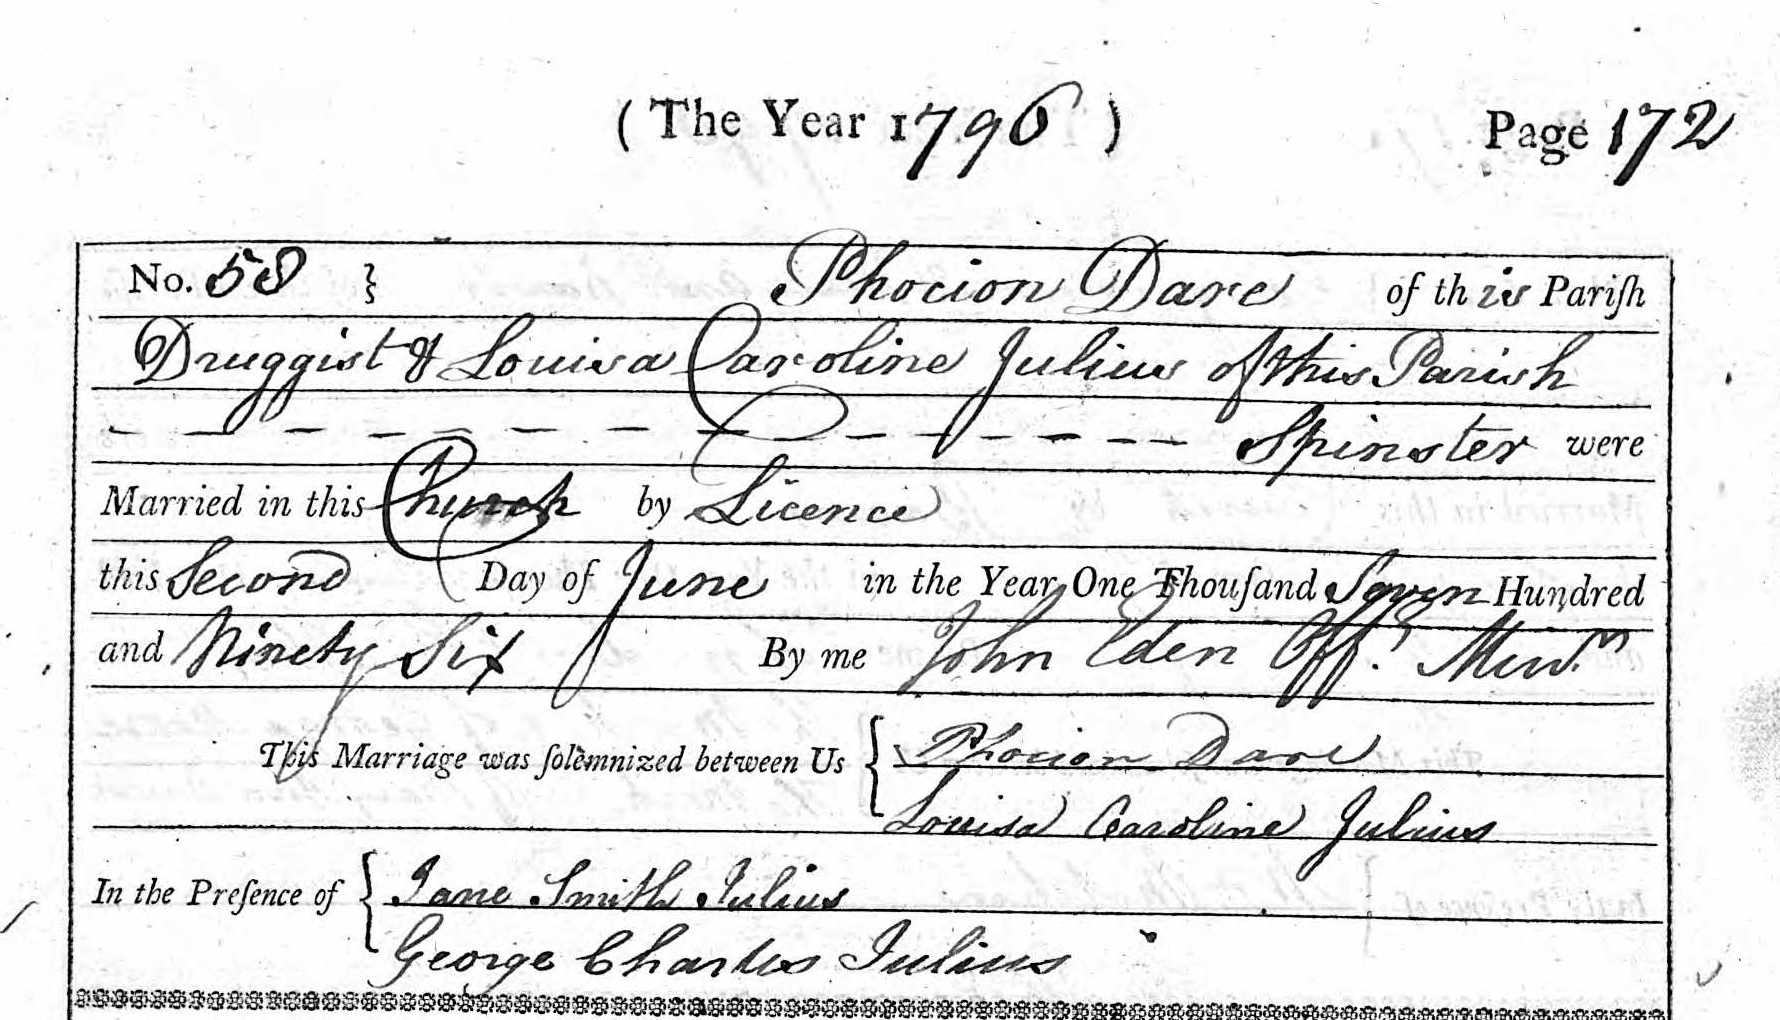 ( The Year 1796 ) Page 172
No. 58 } Phocion Dare of this Pariſh
Druggist & Louisa Caroline Julius of this Parish
– – – – – – – – – – – – – – – Spinster were
Married in this Church by Licence
this Second Day of June in the Year One Thouſand Seven Hundred
and Ninety Six By me John Eden Off.g Minr.
This Marriage was ſolemnized between Us { Phocion Dare
Louisa Caroline Julius
In the Preſence of { Jane Smith Julius
George Charles Julius